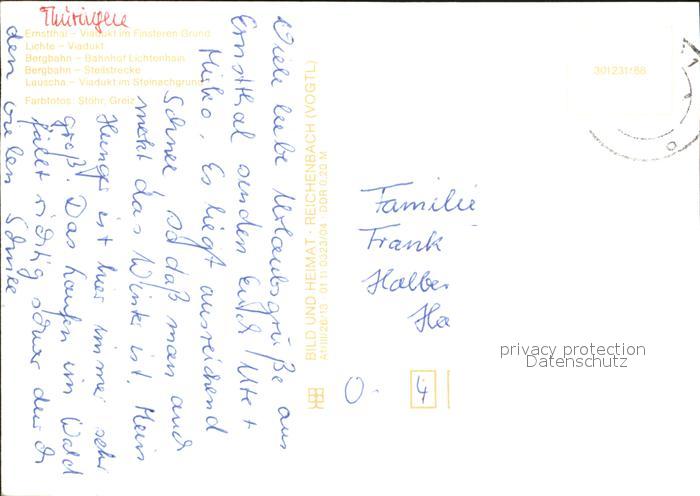 Thüringen
Ernstthal – Viadukt im Finsteren Grund
Lichte – Viadukt
Bergbahn – Bahnhof Lichtenhain
Bergbahn – Steilstrecke
Lauscha – Viadukt im Steinachgrund
Farbfotos: Stöhr, Greiz
Viele liebe Urlaubsgrüße aus
Ernstthal senden Euch Ute +
Heiko. Es liegt ausreichend
Schnee so daß man auch
merkt das Winter ist. Mein
Hunger ist hier immer sehr
groß. Das Laufen im Wald
fällt richtig schwer durch
den vielen Schnee
BILD UND HEIMAT · REICHENBACH (VOGTL)
A1/III/26/13 01 11 0323/04 DDR 0,20 M
301231166
Familie
Frank
Halber
Ha
O.
4
privacy protection
Datenschutz